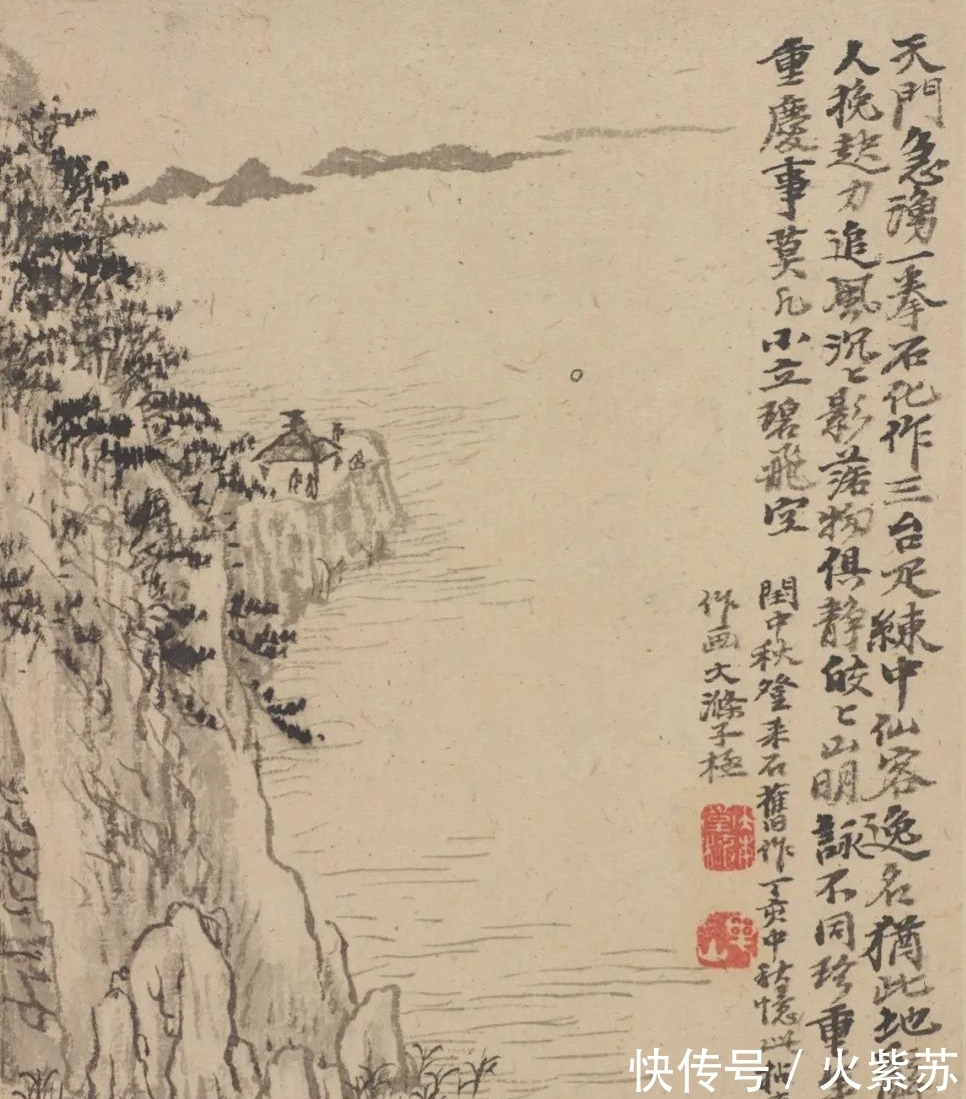 天門急湧一拳石化作三台疋練中仙客逸名猶此地
人挽起力追風沉〻影落物俱靜皎〻山明詠不同珍重
重慶事莫凡小立碧飛空
閏中秋登采石舊作丁亥中秋憶此拈
作画大滌子極
快传号 / 火紫苏